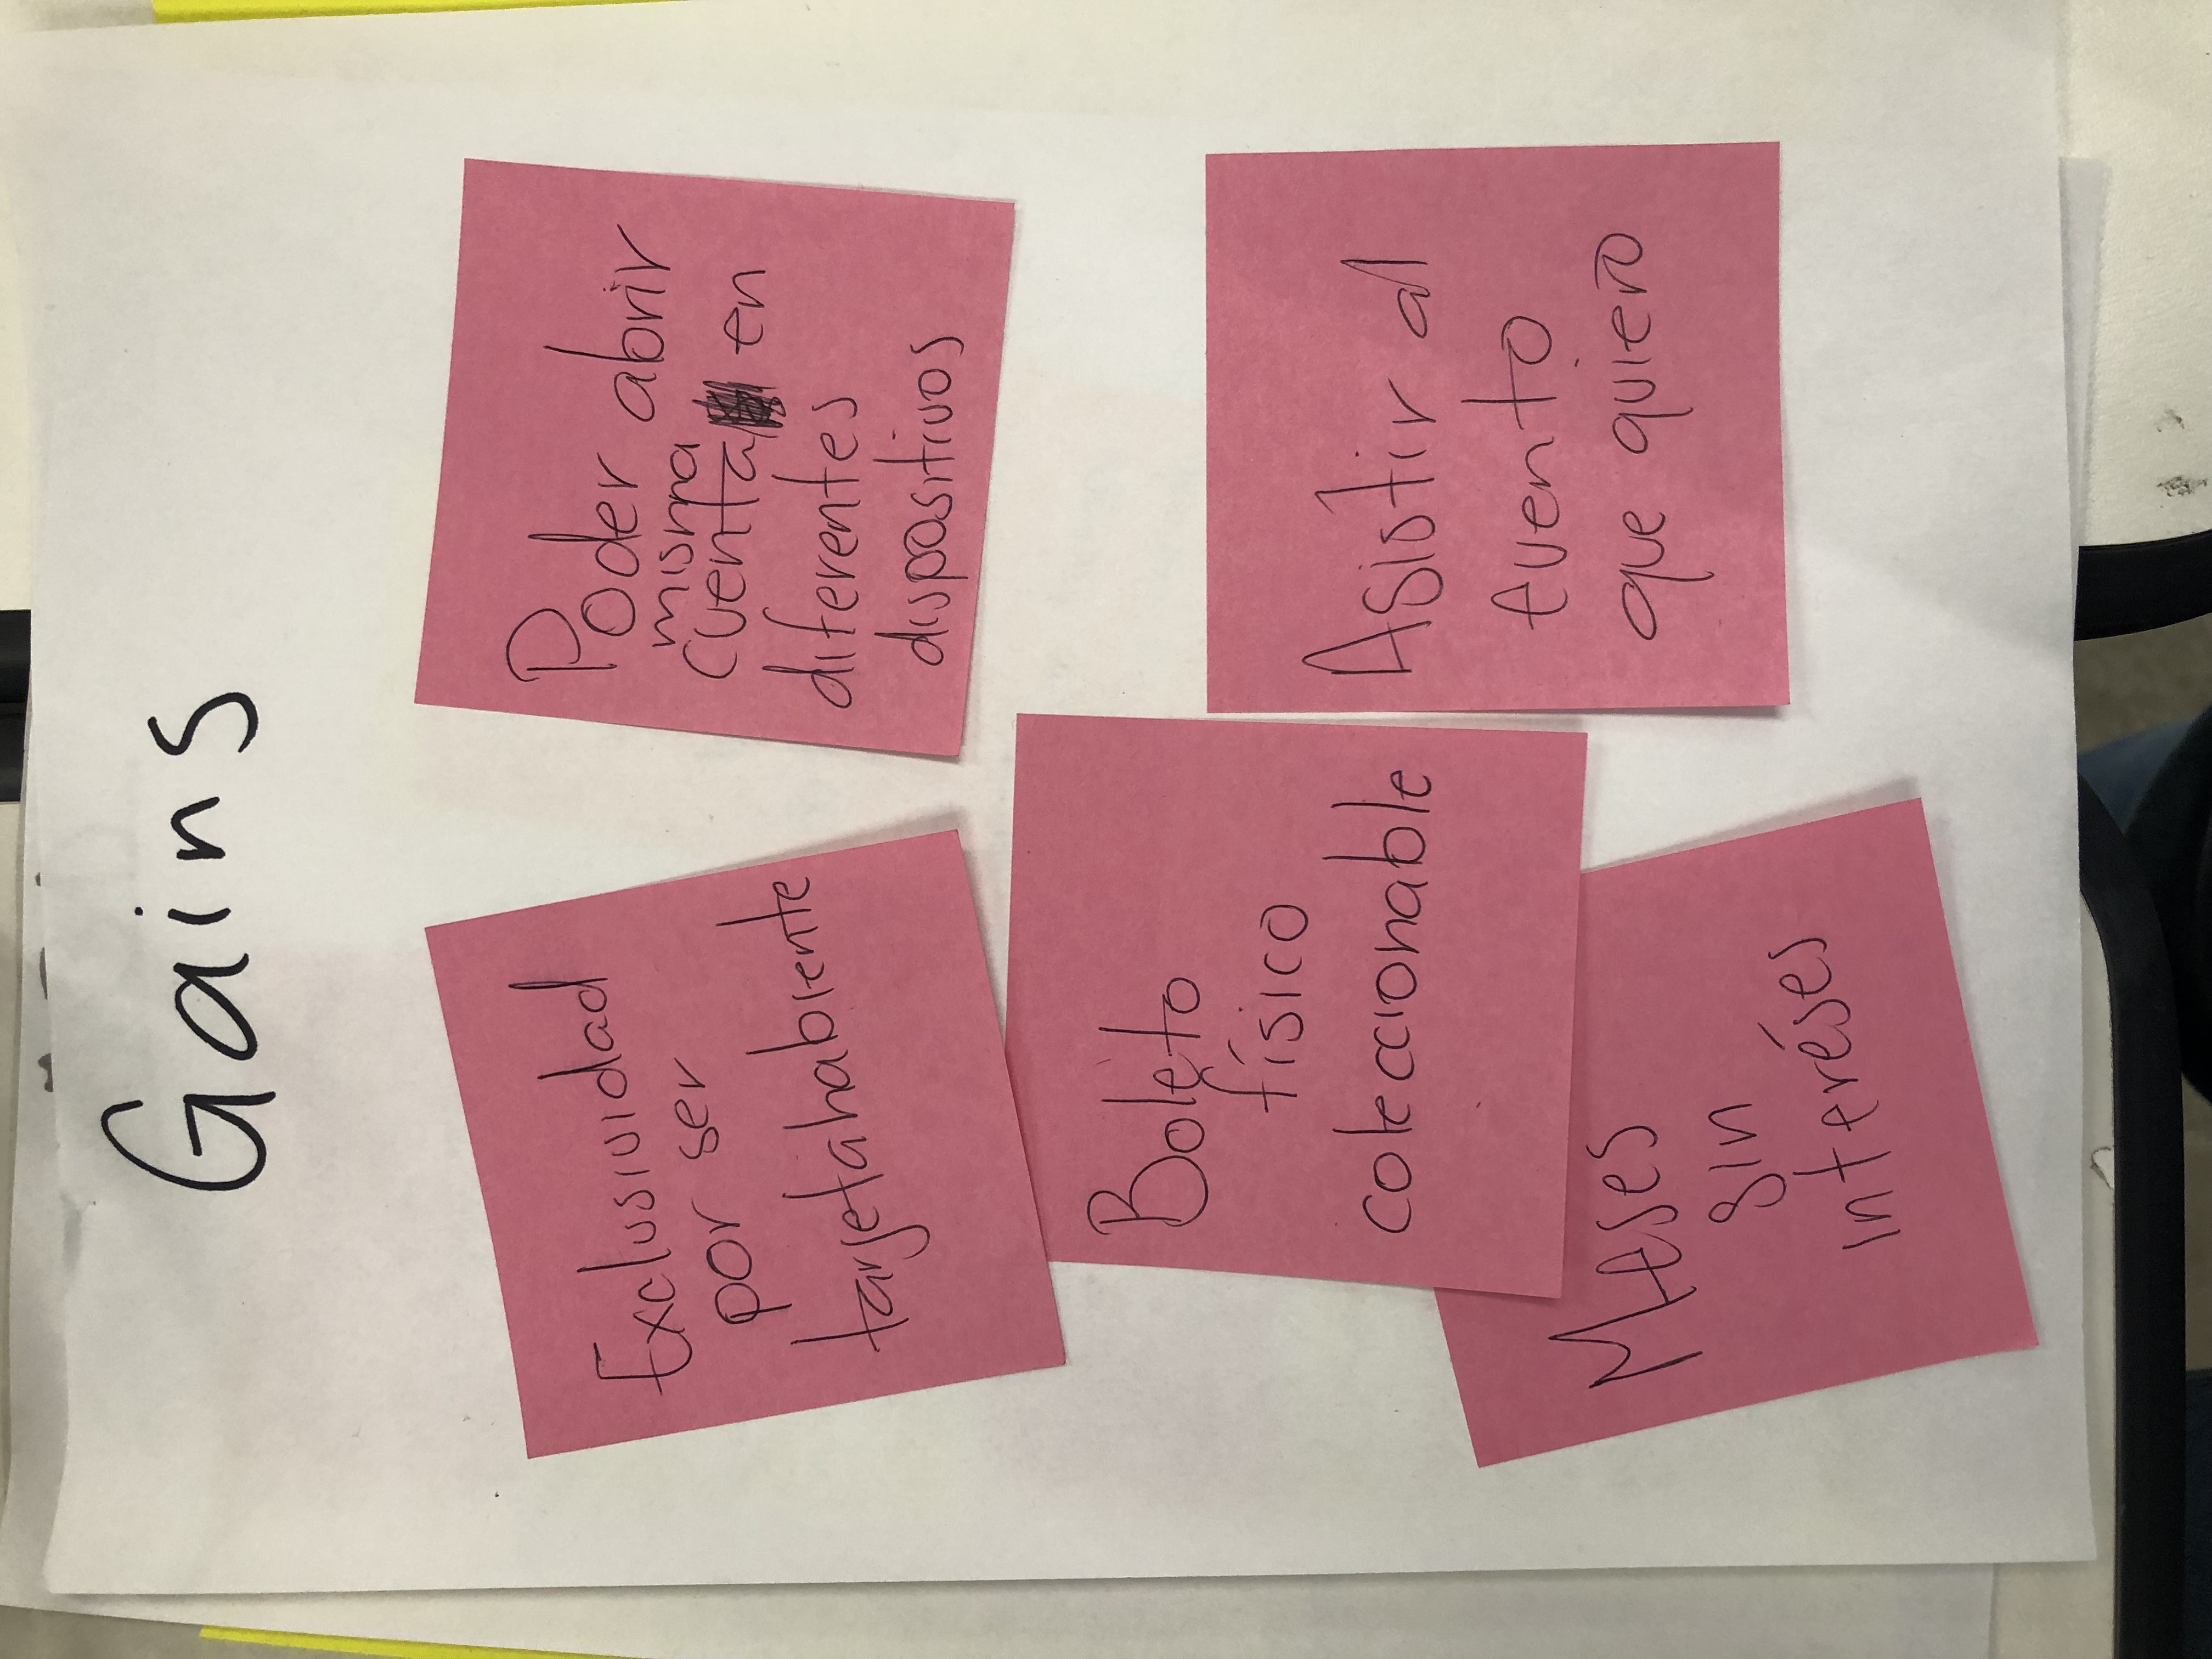 Gains
Exclusividad
por ser
tarjetahabiente
Poder abrir
misma
cuenta en
diferentes
dispositivos
Boleto
físico
coleccionable
Asistir al
evento
que quiero
Meses
sin
interéses